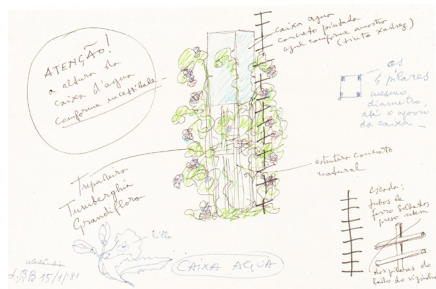 ATENÇÃO!
a altura da
caixa d'água
conforme necessidade
caixa agua
concreto pintado
azul conforme amostra
(tinta xadrez)
os
4 pilares
mesmo
diametro,
até o apoio
da caixa
estrutura concreto
natural
Trepadeira
Tumberghia
Grandiflora
Escada:
tubos de
ferro
dos pilares do
lilás
CAIXA AGUA
15/1/81